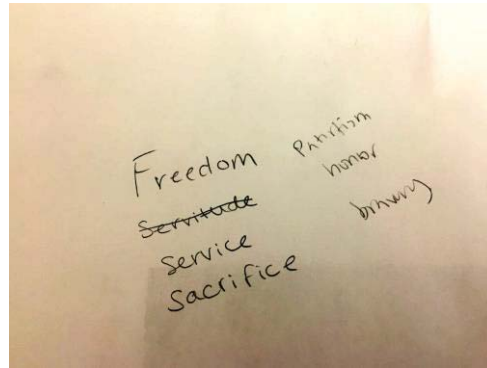 Freedom
Servitude
service
sacrifice
Patriotism
honor
bravery